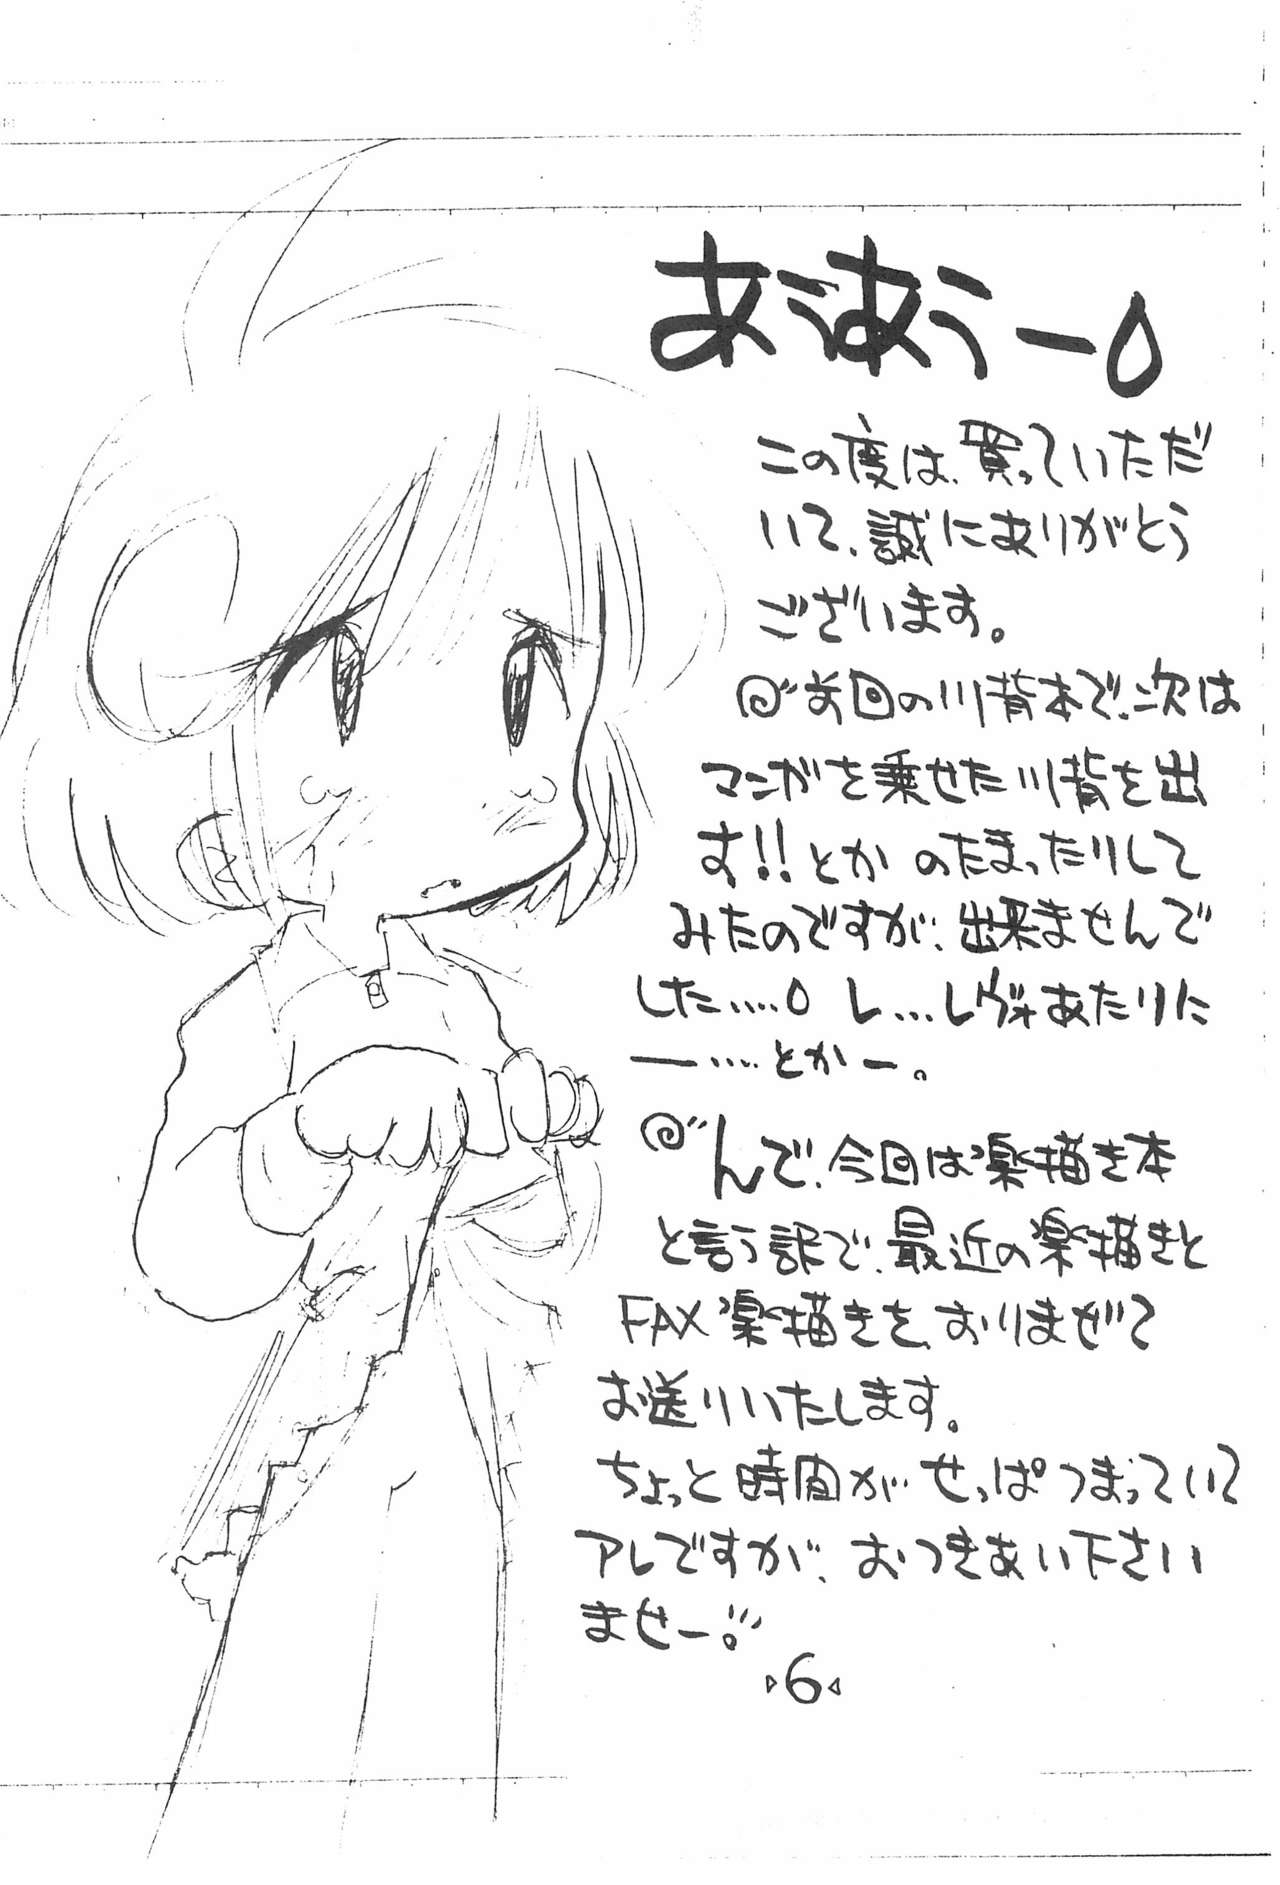 あうあうー
この度は、買っていただ
いて、誠にありがとう
ございます。
@前回の川背本で、次は
マンガを乗せた川背を出
す!!とか のたまったりして
みたのですが、出来ませんで
した…. レ…レヴォあたりに
ー….とかー。
@んで、今回は楽描き本
と言う訳で、最近の楽描きと
FAX楽描きを、おりまぜて
お送りいたします。
ちょっと時間がせっぱつまっていて
アレですが、おつきあい下さい
ませー。
6